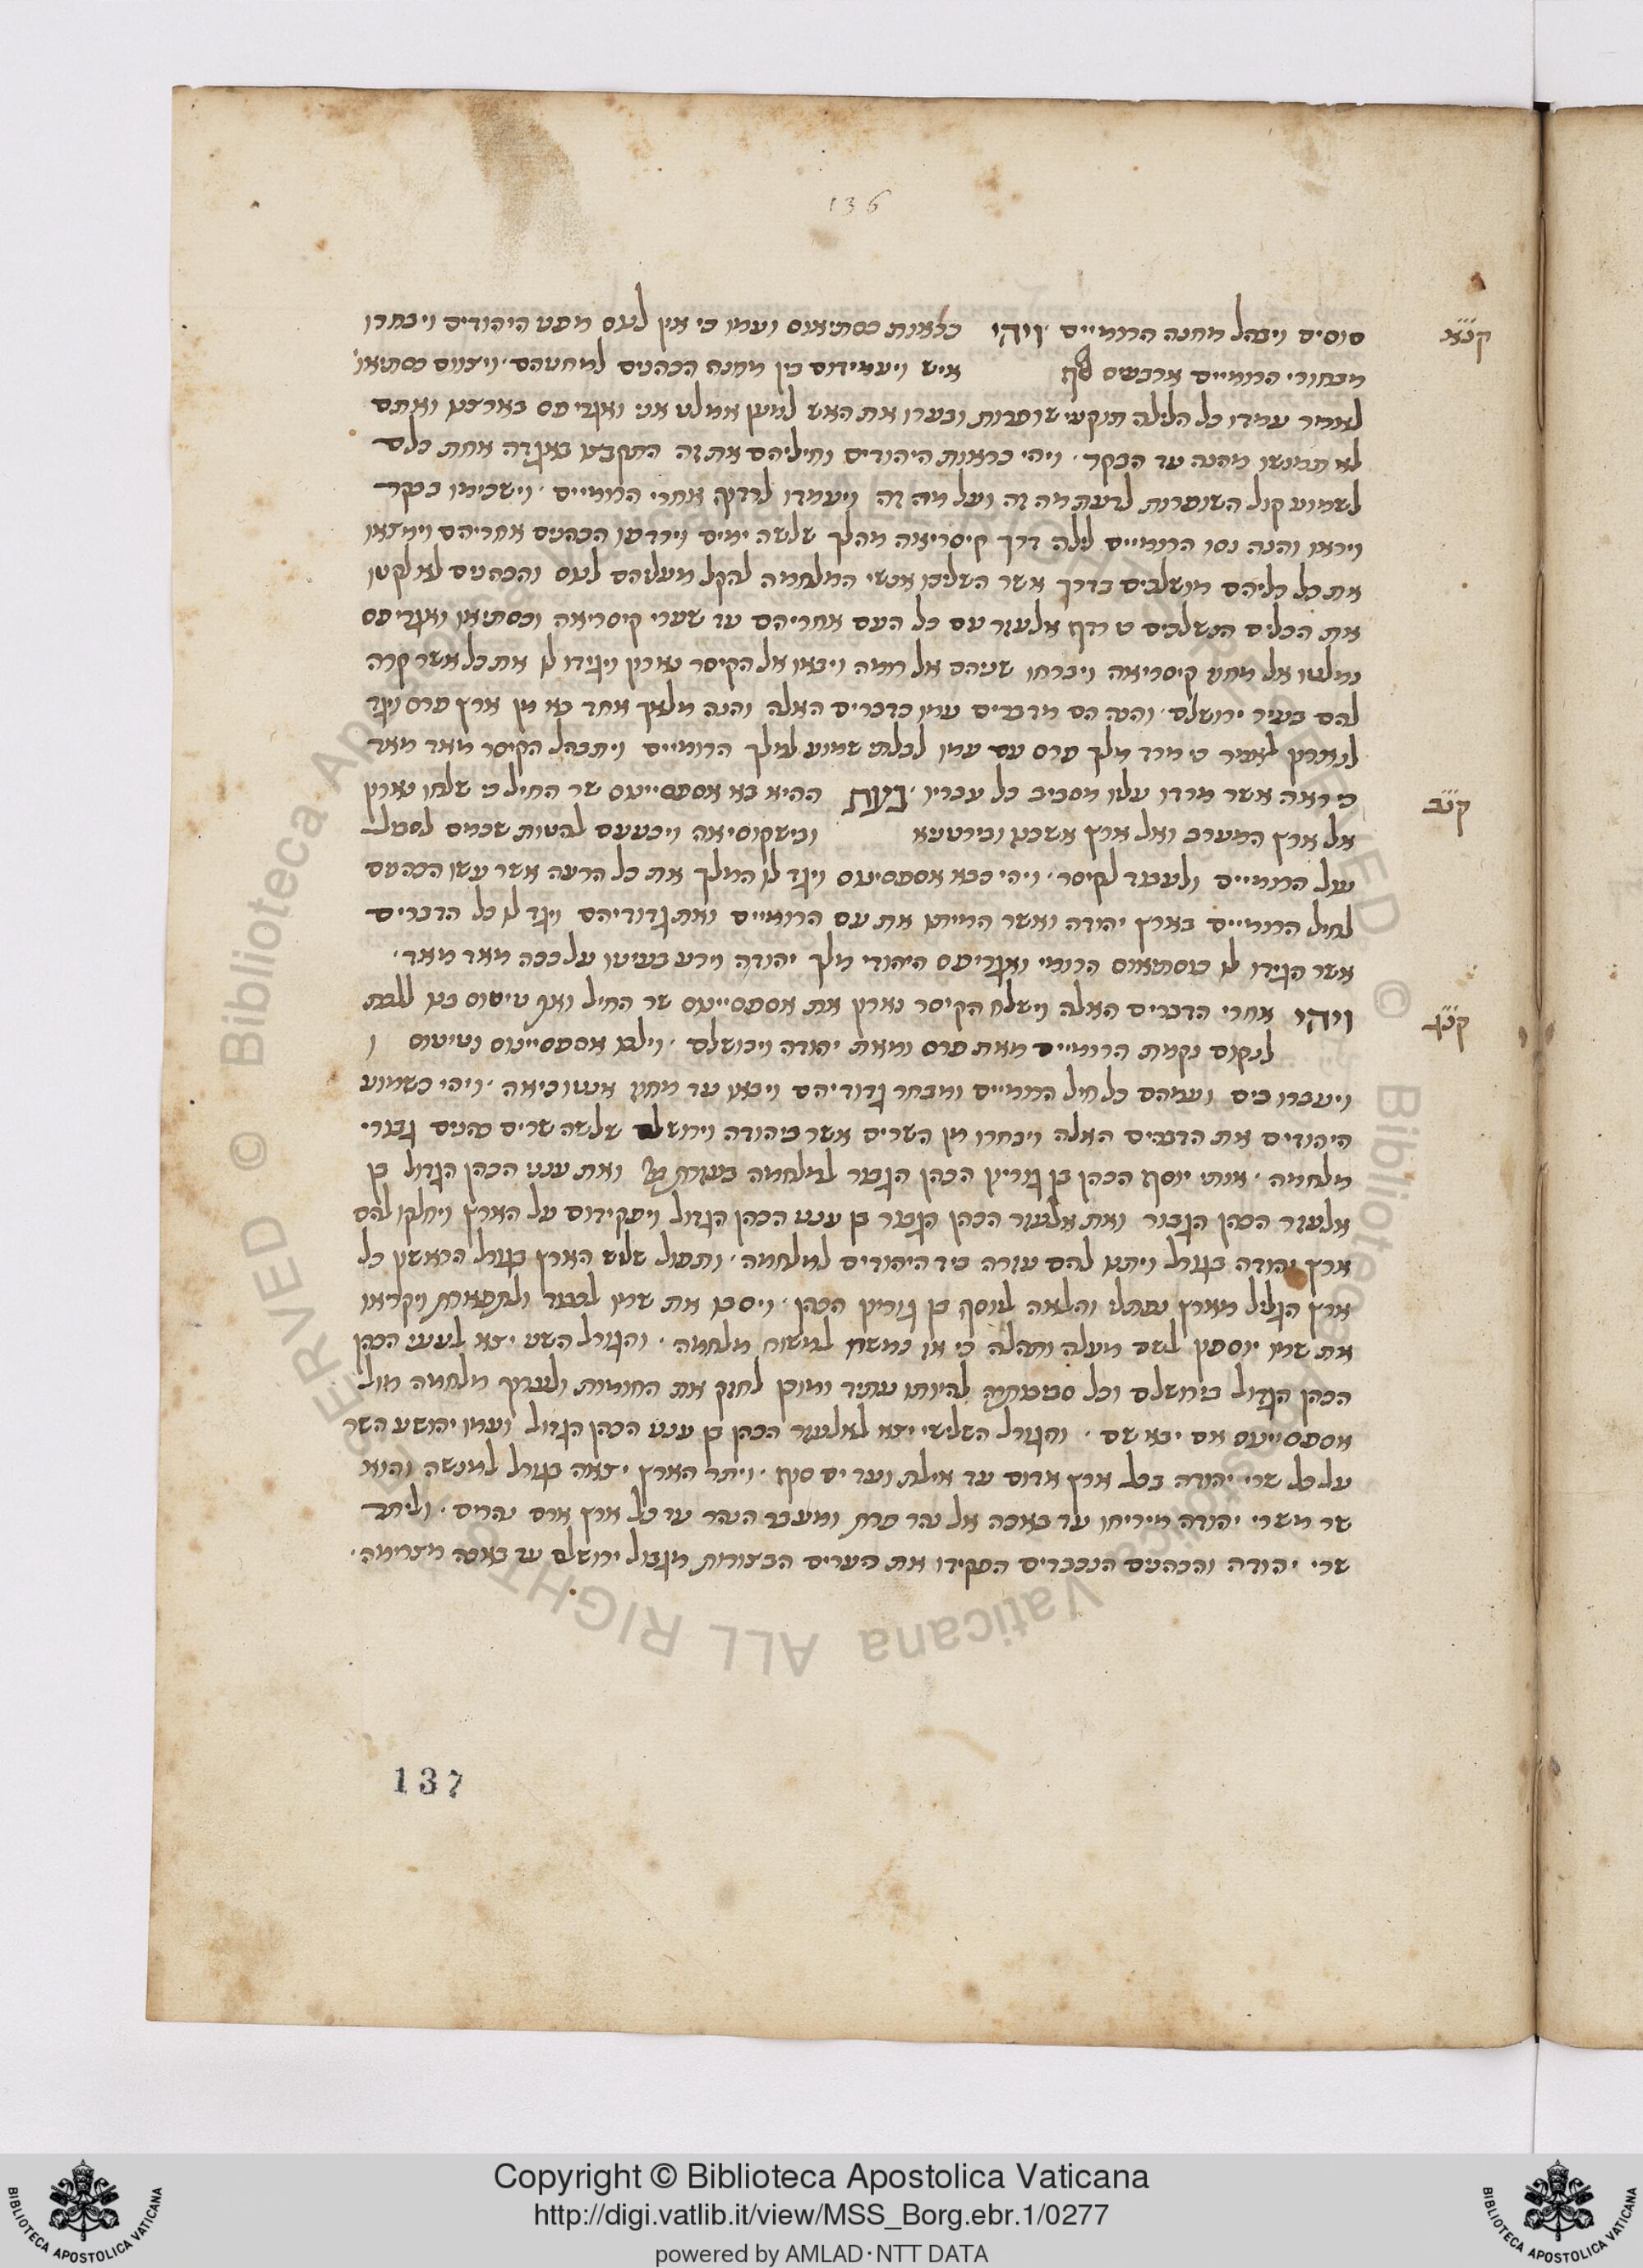 136
קנא
סוסים ויבהל מחנה הרומיים ויהי כראות כסתיאוס ועמו כי אין לעם מפני היהודים ויבחרו
מבחורי הרומיים ארבעים איש ויעמידום בין מחנה הכהנים למחניהם ויצוום כסתיאו
לאמר עמדו כל הלילה תוקעי שופרות ובערו את האש למען אמלט אני ואגריפס בארצנו ואתם
לא תמושו מהנה עד הבקר ויהי כראות היהודים וחיליהם את זה התקבצו באגדה אחת כלם
לשמוע קול השופרות לדעת מה זה ועל מה זה ויעמדו לרדוף אחרי הרומיים וישכימו בבקר
ויראו והנה נסו הרומיים לילה דרך קיסריאה מהלך שלשה ימים וירדפו הכהנים אחריהם וימצאו
את כל כליהם מושלכים בדרך אשר השליכו אנשי המלחמה להקל מעליהם לנוס והכהנים לא לקטו
את הכלים הנשלכים כי רדף אלעזר עם כל העם אחריהם עד שערי קיסריאה וכסתיאו ואגריפס
נמלטו אל מחנה קיסריאה ויברחו שניהם אל רומה ויבאו אל הקיסר נארון ויגידו לו את כל אשר קרה
להם בעיר ירושלם והנה הם מדברים עמו כדברים האלה והנה מלאך אחד בא מן ארץ פרס ויגד
לנארון לאמר כי מרד מלך פרס עם עמו לבלתי שמוע למלך הרומיים ויתבהל הקיסר מאד מאד
קנב
כי ראה אשר מרדו עליו מסביב כל עבריו בעת ההיא בא אספסיינוס שר החיל כי שלחו נארון
אל ארץ המערב ואל ארץ אשכנז ובריטניא ובישקוסיאה ויכניעם להטות שכמם לסבול
עול הרומיים ולעבוד לקיסר ויהי כבא אספסינוס ויגד לו המלך את כל הרעה אשר עשו הכהנים
לחיל הרומיים בארץ יהודה ואשר המיתו את עם הרומיים ואת גדודיהם ויגד לו כל הדברים
אשר הגידו לו כוסתיאוס הרומי ואגריפס היהודי מלך יהודה וירע בעיניו על ככה מאד מאד
קנג
ויהי אחרי הדברים האלה וישלח הקיסר נארון את אספסיינוס שר החיל ואת טיטוס בנו ללכת
לנקום נקמת הרומיים מאת פרס ומאת יהודה וירושלם וילכו אספסיינוס וטיטוס
ויעברו בים ועמהם כל חיל הרומיים ומבחר גדודיהם ויבאו עד מחוז אנטוכיאה ויהי כשמוע
היהודים את הדברים האלה ויבחרו מן השרים אשר ביהודה וירושלם שלשה שרים כהנים גבורי
מלחמה אותי יוסף הכהן בן גוריון הכהן הגבור למלחמה ואת ענני הכהן הגדול בן
אלעזר הכהן הגבור ואת אלעזר הכהן הגבור בן ענני הכהן הגדול ויפקידום על הארץ ויחלקו להם
ארץ יהודה בגורל ויתנו להם עזרה ביד היהודים למלחמה ותפול שליש הארץ בגורל הראשון כל
ארץ הגליל מארץ נפתלי והלאה ליוסף בן גוריון הכהן ויסבו את שמו לכבוד ולתפארת ויקראו
את שמו יוסיפון לשם מעלה ותהלה כי אז נמשח למשוח מלחמה והגורל השני יצא לענני הכהן
הכהן הגדול בירושלם וכל סביבותיה להיותו עתיד ומוכן לחזק את החומות ולערוך מלחמה מול
אספסיינוס אם יבא שם והגורל השלישי יצא לאלעזר הכהן בן ענני הכהן הגדול ועמו יהושע השר
על כל שרי יהודה בכל ארץ אדום עד אילת ועד ים סוף ויתר הארץ יצאה בגורל למנשה והוא
שר משרי יהודה מיריחו עד באכה אל נהר פרת ומעבר הנהר עד כל ארץ ארם נהרים וליתר
שרי יהודה והכהנים הנכבדים הפקידו את הערים הבצורות מגבול ירושלם עד באכה מצרימה
137
Copyright © Biblioteca Apostolica Vaticana
http://digi.vatlib.it/view/MSS_Borg.ebr.1/0277
powered by AMLAD·NTT DATA
BIBLIOTECA APOSTOLICA VATICANA
BIBLIOTECA APOSTOLICA VATICANA